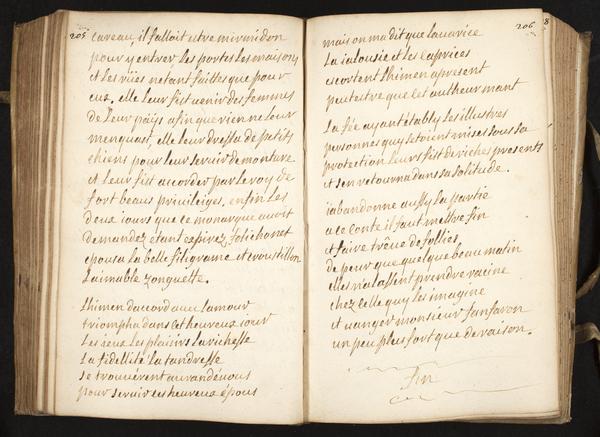 205
caveau, il falloit estre mirmidon
pour y entrer, les portes les maisons
et les rües n'etant faittes que pour
eux, elle leur fist venir des femmes
de leur païs afin que rien ne leur
menquast, elle leur dressa de petits
chiens pour leur servir de monture
et leur fist accorder par le roy de
fort beaux privileiges, enfin les
deux iours que ce monarque avoit
demandez etant expirez, folichonet
epousa la belle filigrame et croustillon
l'aimable zonguette.
l'himen d'accord avec l'amour
triompha dans cet heureux iour
les ieux les plaisirs la richesse
la fidellité la tandresse
se trouuérent au randéuous
pour seruir ces heureux épous
206
8
mais on m'a dit que l'auarice
la ialousie et les caprices
escortent l'himen a present
peutestre que les autheur mant
la fée ayant étably les illustres
personnes quy s'etoient mises sous sa
protection leurs fist de riches presents
et s'en retourna dans sa solitude.
i'abandonne aussy la partie
a ce conte il faut mettre fin
et faire trêue de follies,
de peur que quelque beau matin
elles n'alassent prendre racine
chez celle quy les imagine
et vanger monsieur fanfaron
un peu plus fort que de raison.
fin